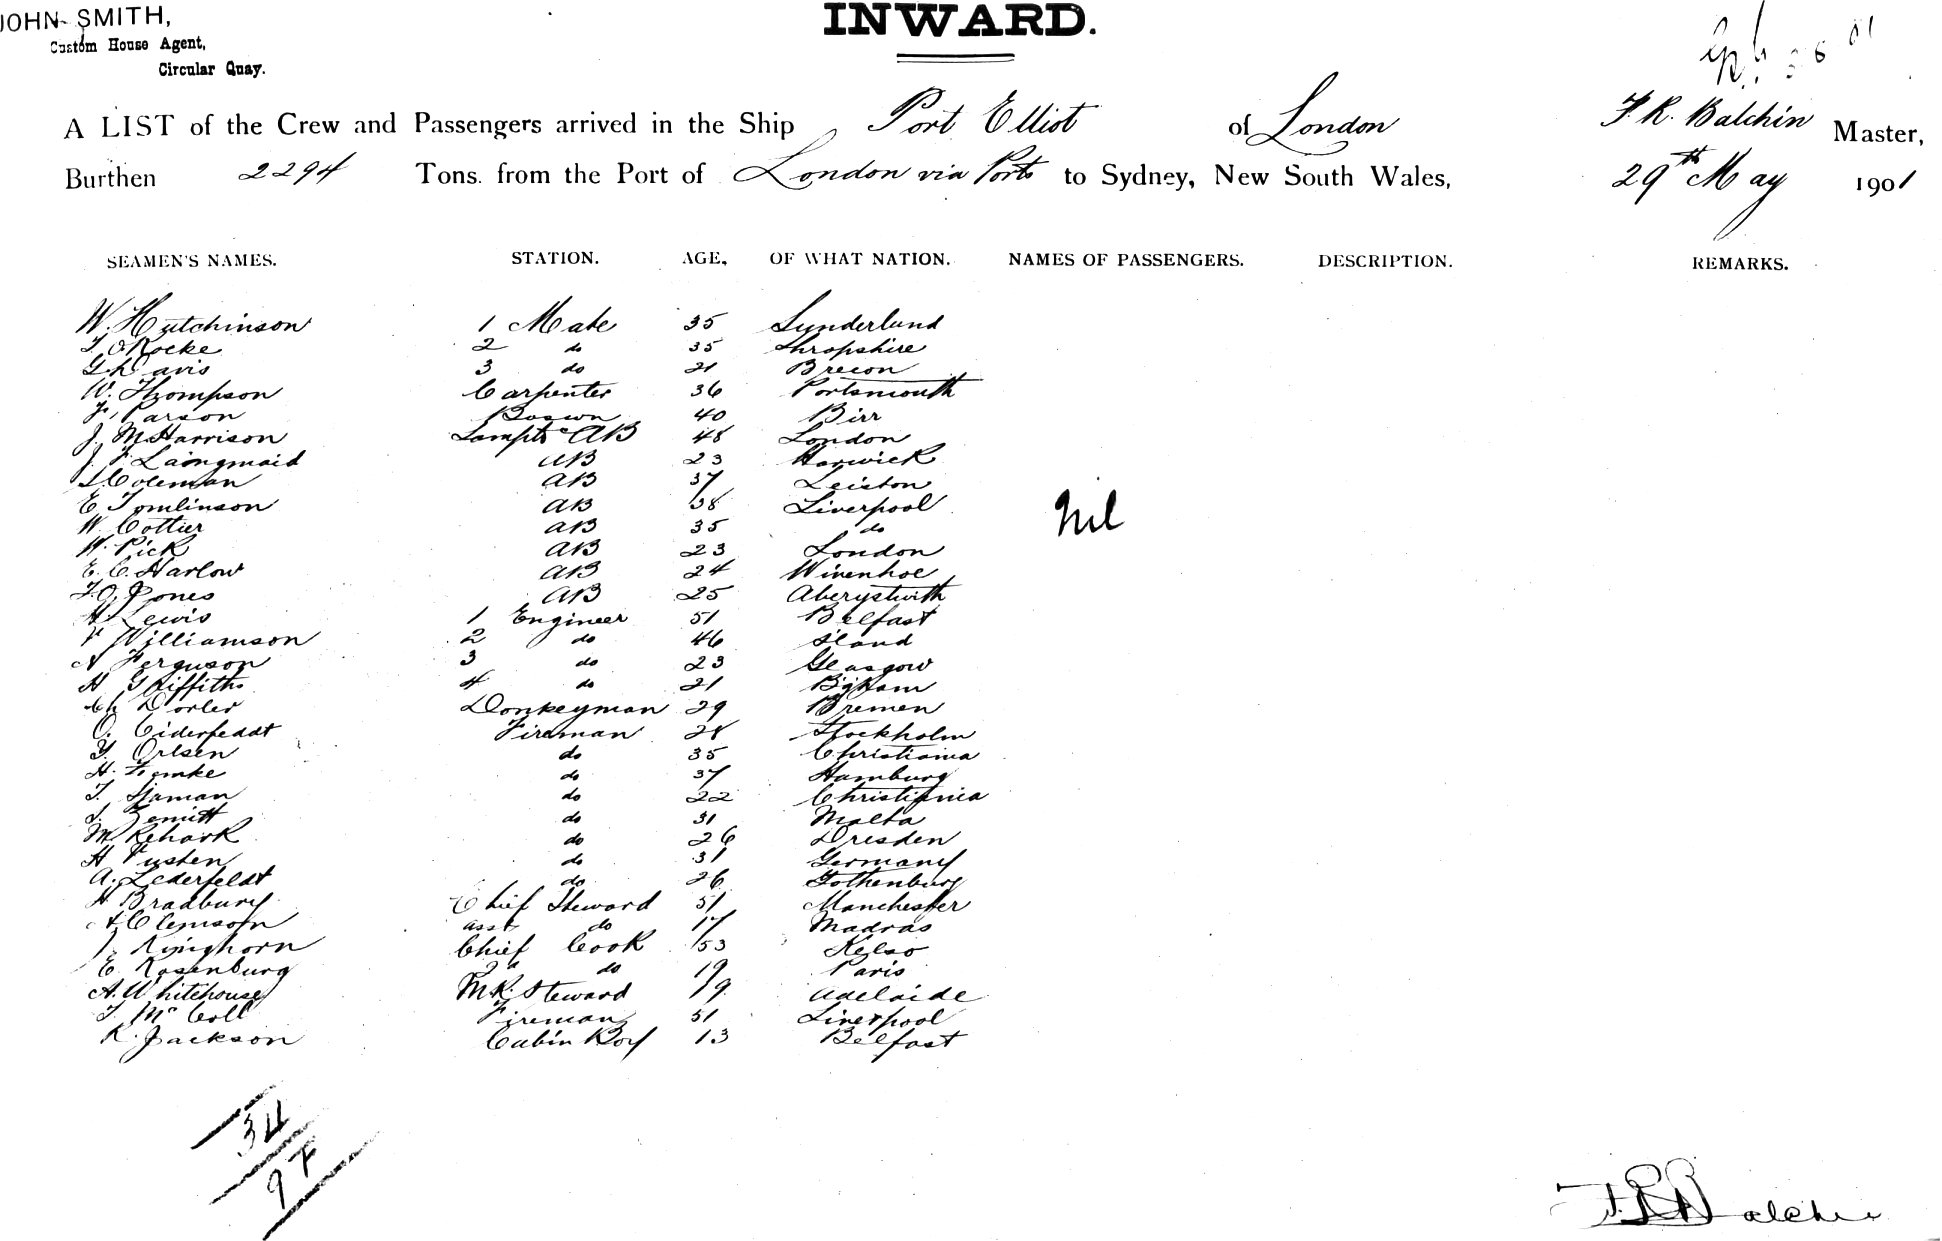 JOHN SMITH,
Custom House Agent,
Circular Quay.
INWARD.
A LIST of the Crew and Passengers arrived in the Ship Port Elliot of London F R. Balchin Master,
Burthen 2294 Tons. from the Port of London via Ports to Sydney, New South Wales, 29th May 1901
SEAMEN'S NAMES. STATION. AGE, OF WHAT NATION. NAMES OF PASSENGERS. DESCRIPTION. REMARKS.
W. Hutchinson 1 Mate 35 Sunderland
2 do 35 Shropshire
Davis 3 do 21 Brecon
W. Thompson Carpenter 36 Portsmouth
Parson Bosun 40 Birr
J. M Harrison Lampts & AB 48 London
J. F Laingmaid AB 23 Harwick
Coleman AB 37 Leiston
E Tomlinson AB 38 Liverpool
Nil
W. Cottier AB 35 do
W. Pick AB 23 London
E. C. Harlow AB 24 Wivenhoe
Jones AB 25 Aberystwith
Lewis 1 Engineer 51 Belfast
Williamson 2 do 46
Ferguson 3 do 23 Glasgow
H Griffiths 4 do 21 B'gham
Dorler Donkeyman 29 Bremen
O. Fireman 28 Stockholm
Orlsen do 35 Christiania
H. do 37 Hamburg
do 22 Christiania
Zemitt do 31 Malta
M Rehark do 26 Dresden
H do 31 Germany
A. Lederfeldt do 26 Gothenburg
H Bradbury Chief Steward 51 Manchester
A Clemson asst do 17 Madras
J. Kinghorn Chief Cook 53 Kelso
E. Rosenburg 2d do 19 Paris
A. Whitehouse M.R. Steward 19 Adelaide
T. Mc Coll Fireman 51 Liverpool
R. Jackson Cabin Boy 13 Belfast
34
F. R. Balchin